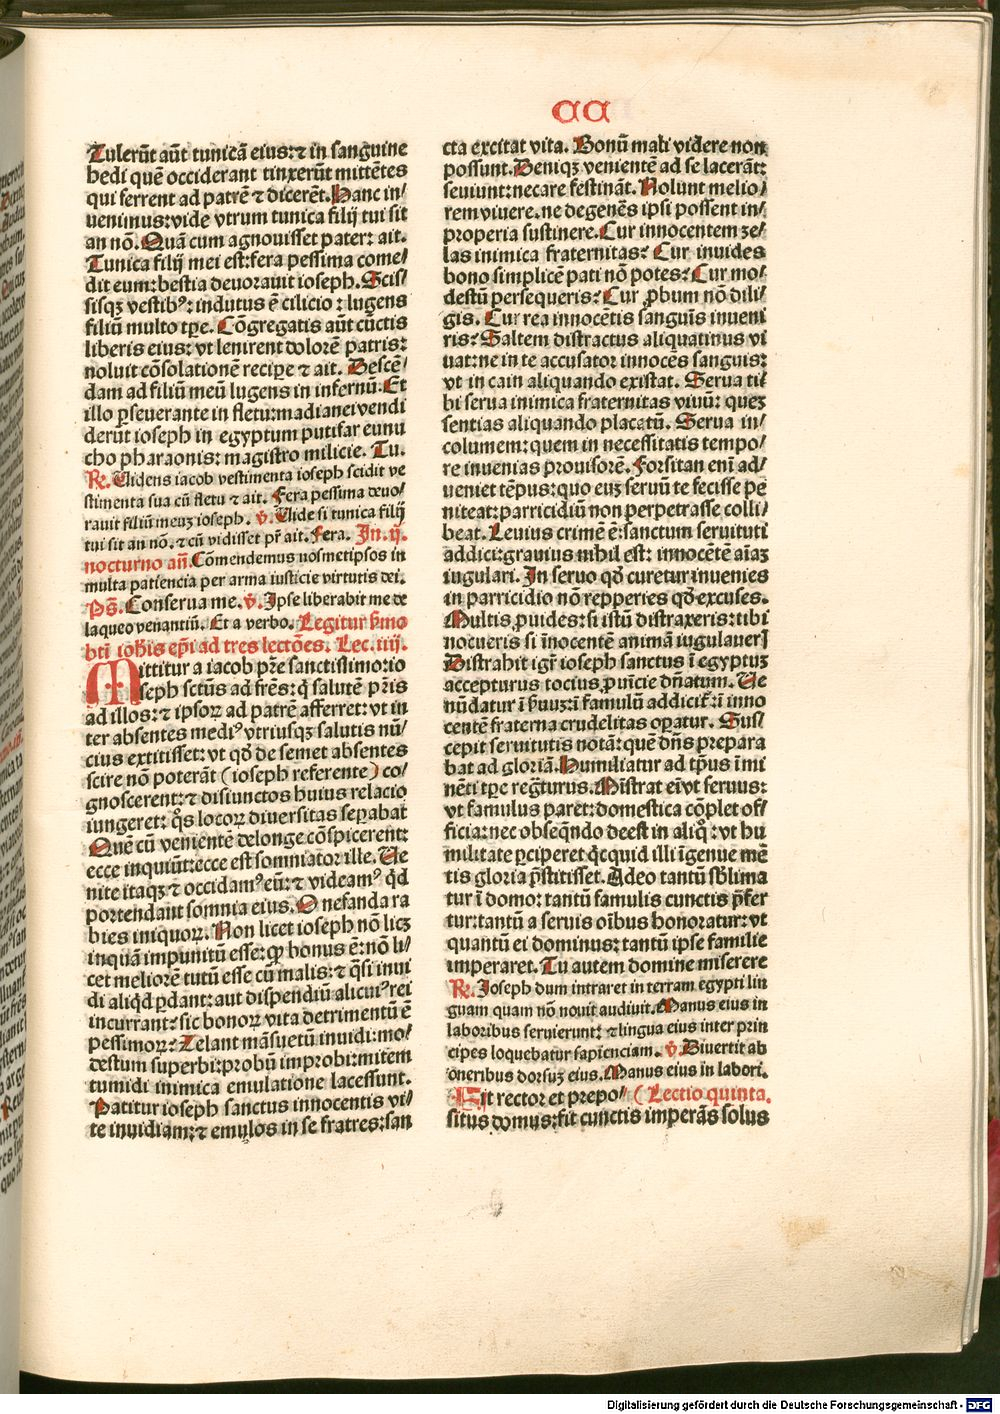 CC
Tulerūt aūt tunicā eius: ⁊ in sanguine
hedi quē occiderant tinxerūt mittētes
qui ferrent ad patrē ⁊ dicerēt. Hanc in⸗
uenimus: vide vtrum tunica filij tui sit
an nō. Quā cum agnouisset pater: ait.
Tunica filij mei est: fera pessima come⸗
dit eum: bestia deuorauit ioseph. Scis⸗
sisqꝫ vestibꝰ: indutus ē cilicio: lugens
filiū multo tꝑe. Cōgregatis aūt cūctis
liberis eius: vt lenirent dolorē patris:
noluit cōsolationē recipe ⁊ ait. Descē⸗
dam ad filiū meū lugens in infernū: Et
illo ꝑseuerante in fletu: madianei vendi
derūt ioseph in egyptum putifar eunu
cho pharaonis: magistro milicie. Tu.
℟. Uidens iacob vestimenta ioseph scidit ve
stimenta sua cū fletu ⁊ ait. Fera pessima deuo⸗
rauit filiū meuꝫ ioseph. ℣. Uide si tunica filij
tui sit an nō. ⁊ cū vidisset pr̄ ait. Fera. In .ij.
nocturno añ. Cōmendemus nosmetipsos in
multa patiencia per arma iusticie virtutis dei.
Ps̄. Conserua me. ℣. Ipse liberabit me de
laqueo venantiū. Et a verbo. Legitur s̄mo
bt̄i ioh̄is ep̄i ad tres lectōes. Lec. iiij.
Mittitur a iacob pr̄e sanctissimo: io
seph sct̄us ad fr̄es: q̄ salutē pr̄is
ad illos: ⁊ ipsoꝝ ad patrē afferret: vt in
ter absentes mediꝰ vtriusqꝫ salutis nū⸗
cius extitisset: vt qd̄ de semet absentes
scire nō poterāt (ioseph referente) co⸗
gnoscerent: ⁊ disiunctos huius relacio
iungeret: q̄s locoꝝ diuersitas seꝑabat
Quē cū venientē delonge cōspicerent:
ecce inquiūt: ecce est somniator ille. Ue
nite itaqꝫ ⁊ occidamꝰ eū: ⁊ videamꝰ qd̄
portendant somnia eius. O nefanda ra
bies iniquoꝝ. Non licet ioseph nō licꝫ
inquā impunitū esse: qꝛ bonus ē: nō li⸗
cet meliorē tutū esse cū malis: ⁊ q̄si inui
di aliqd ꝑdant: aut dispendiū alicuiꝰ rei
incurrant: sic bonoꝝ vita detrimētū ē
pessimoꝝ: Zelant māsuetū inuidi: mo⸗
destum superbi: probū improbi: mitem
tumidi inimica emulatione lacessunt.
Patitur ioseph sanctus innocentis vi⸗
te inuidiam: ⁊ emulos in se fratres: san
cta excitat vita. Bonū mali videre non
possunt. Deniqꝫ venientē ad se lacerāt:
seuiunt: necare festināt. Nolunt melio⸗
rem viuere. ne degenēs ipsi possent in⸗
properia sustinere. Cur innocentem ze⸗
las inimica fraternitas? Cur inuides
bono simplicē pati nō potes? Cur mo⸗
destū persequeris? Cur ꝓbum nō dili⸗
gis. Cur rea innocētis sanguīs inueni
ris? Saltem distractus aliquatinus vi
uat: ne in te accusator innocēs sanguis:
vt in cain aliquando existat. Serua ti⸗
bi serua inimica fraternitas viuū: queꝫ
sentias aliquando placatū. Serua in⸗
columem: quem in necessitatis tempo⸗
re inuenias prouisorē. Forsitan eni ad⸗
ueniet tēpus: quo euꝫ seruū te fecisse pe
niteat: parricidiū non perpetrasse colli⸗
beat. Leuius crimē ē: sanctum seruituti
addici: grauius nihil est: innocētē aīaꝫ
iugulari. In seruo qd̄ curetur inuenies
in parricidio nō repperies qd̄ excuses.
Multis ꝓuides: si istū distraxeris: tibi
nocueris si īnocentē animā iugulaueris
Distrahit igr̄ ioseph sanctus ī egyptuꝫ
accepturus tocius ꝓuīcie dn̄atum. Ue
nūdatur ī s̄uuꝫ: ī famulū addicit̄: ī inno
centē fraterna crudelitas oꝑatur. Sus⸗
cepit seruitutis notā: quē dn̄s prepara
bat ad gloriā. Humiliatur ad tp̄us īmi
nēti tꝑe reḡturus. Mīstrat eīvt seruus:
vt famulus paret: domestica cōplet of⸗
ficia: nec obseqn̄do deest in aliqͦ: vt hu
militate ꝑciperet q̄cquid illi īgenue mē
tis gloria p̄stitisset. Adeo tantū sb̄lima
tur ī domo: tantū famulis cunctis p̄fer
tur: tantū a seruis oībus honoratur: vt
quantū ei dominus: tantū ipse familie
imperaret. Tu autem domine miserere
℟. Ioseph dum intraret in terram egypti lin
guam quam nō nouit audiuit. Manus eius in
laboribus seruierunt: ⁊ lingua eius inter prin
cipes loquebatur sapienciam. ℣. Diuertit ab
oneribus dorsuꝫ eius. Manus eius in labori.
Fit rector et prepo⸗ (Lectio quinta.
situs domus: fit cunctis imperās solus
Digitalisierung gefördert durch die Deutsche Forschungsgemeinschaft - DFG